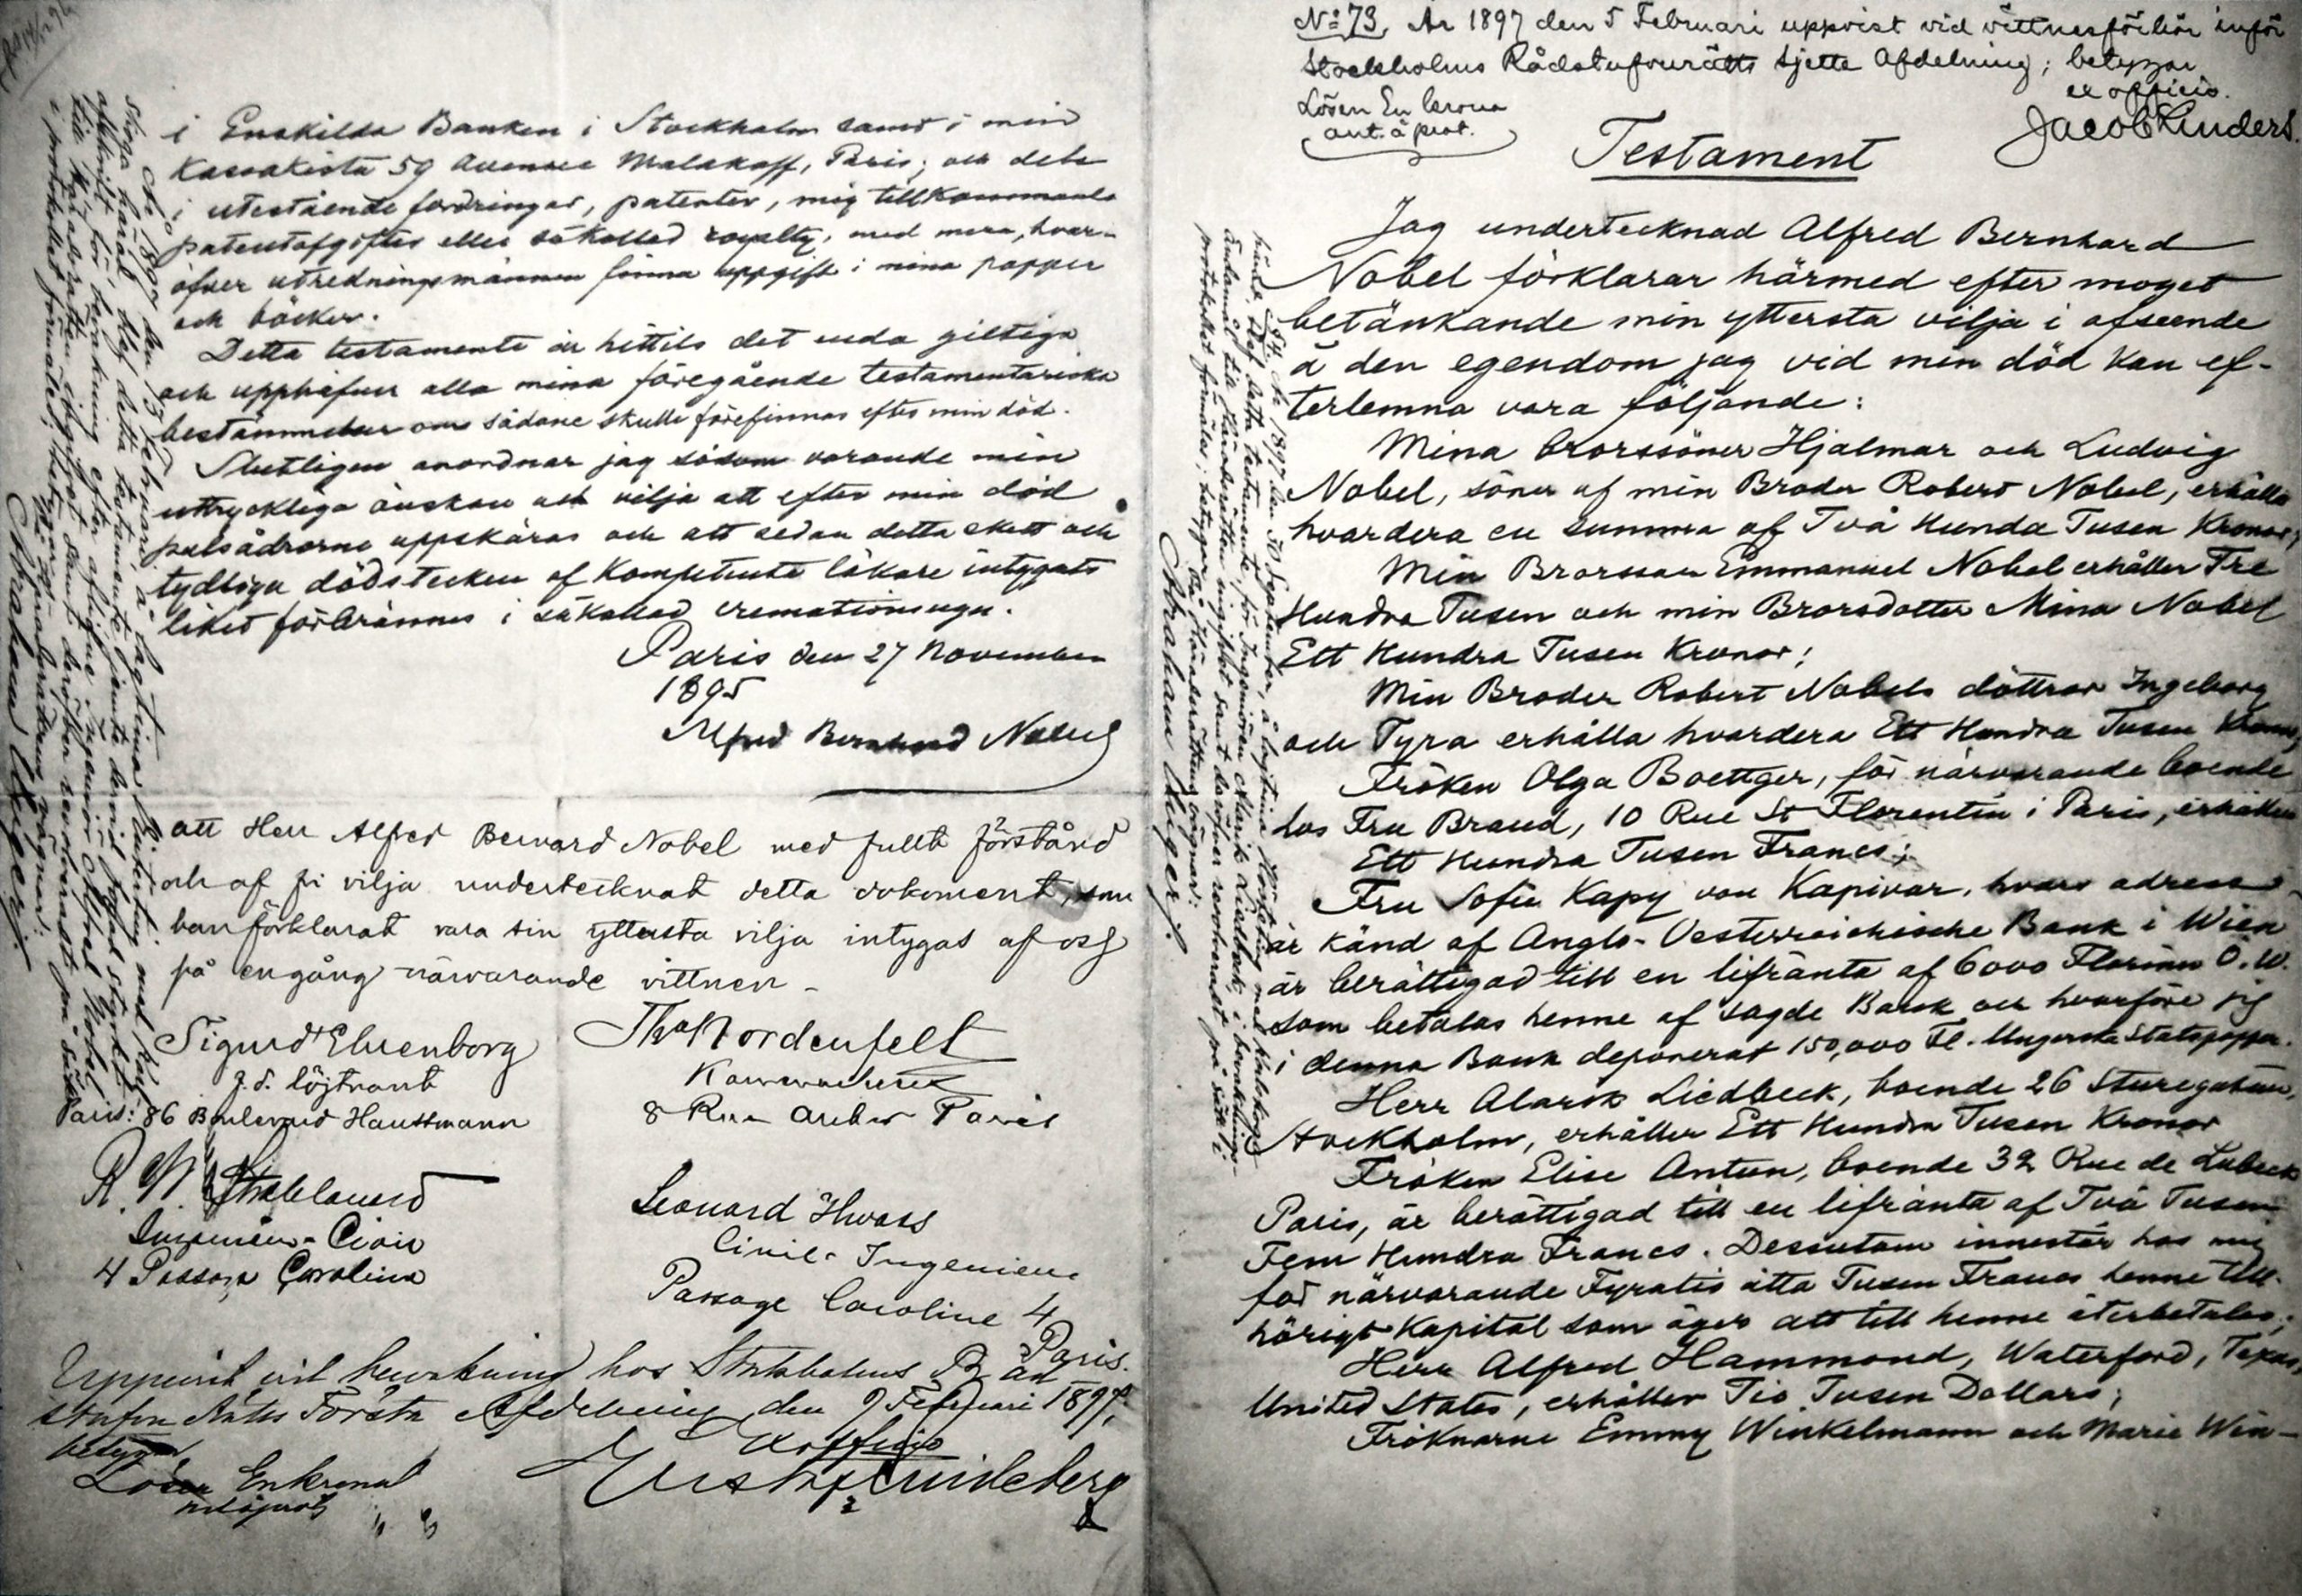 i Enskilda Banken i Stockholm samt i min
Kassakista 59 Avenue Malakoff, Paris; och dels
i utestående fordringar, patenter, mig tillkommande
patentafgifter eller såkallad royalty, med mera, hvar-
öfver utredningsmännen finna uppgift i mina papper
och böcker.
Detta testamente är hittills det enda giltiga
och upphäfver alla mina föregående testamentariska
bestämmelser om sådane skulle förefinnas efter min död.
Slutligen anordnar jag såsom varande min
uttryckliga önskan och vilja att efter min död
pulsådrorna uppskäras och att sedan detta skett och
tydliga dödstecken af kompetenta läkare intygats
liket förbrännes i såkallad cremationsugn.
Paris den 27 November
1895
Alfred Bernhard Nobel
att Herr Alfred Bernard Nobel med fullt förstånd
och af fri vilja undertecknat detta dokument, som
han förklarat vara sin yttersta vilja intygas af oss
på en gång närvarande vittnen -
Sigurd Ehrenborg
f.d. löjtnant
Paris: 86 Boulevard Haussmann
Ths Nordenfelt
8 Rue Auber Paris
R. W. Strehlenert
Ingenieur-Civil
4 Passage Caroline
Leonard Hwass
Civil-Ingenieur
Passage Caroline 4
Paris.
Uppvist vid bevakning hos Stockholms Råd
stufvu Rätts Första Afdelning den 9 Februari 1897,
betygar
Ex officio
Lösen En krona
Abraham Unger.
No 73. År 1897 den 5 Februari uppvist vid vittnesförhör inför
Stockholms Rådstufvurätts sjette Afdelning; betygar
ex officio.
Lösen En krona
ant. å prot.
Jacob Linders.
Testament
Jag undertecknad Alfred Bernhard
Nobel förklarar härmed efter moget
betänkande min yttersta vilja i afseende
å den egendom jag vid min död kan ef-
terlemna vara följande:
Mina brorssöner Hjalmar och Ludvig
Nobel, söner af min Broder Robert Nobel, erhålla
hvardera en summa af Två Hundra Tusen Kronor;
Min Brorsson Emmanuel Nobel erhåller Tre
Hundra Tusen och min Brorsdotter Mina Nobel
Ett Hundra Tusen Kronor;
Min Broder Robert Nobels döttrar Ingeborg
och Tyra erhålla hvardera Ett Hundra Tusen Kronor;
Fröken Olga Boettger, för närvarande boende
hos Fru Brand, 10 Rue St Florentin i Paris, erhåller
Ett Hundra Tusen Francs;
Fru Sofie Kapy von Kapivar, hvars adress
är känd af Anglo-Oesterreichische Bank i Wien
är berättigad till en lifränta af 6000 Florins Ö.W.
som betalas henne af sagde Bank och hvarföre jag
i denna Bank deponerat 150,000 Fl. i Ungerska Statspapper.
Herr Alarik Liedbeck, boende 26 Sturegatan,
Stockholm, erhåller Ett Hundra Tusen Kronor
Fröken Elise Antun, boende 32 Rue de Lubeck
Paris, är berättigad till en lifränta af Två Tusen
Fem Hundra Francs. Dessutom innestår hos mig
för närvarande Fyratio åtta Tusen Francs henne till-
hörigt Kapital som äger att till henne återbetalas;
Herr Alfred Hammond, Waterford, Texas,
United States, erhåller Tio Tusen Dollars;
Fröknarne Emmy Winkelmann och Marie Win-
Abraham Unger.